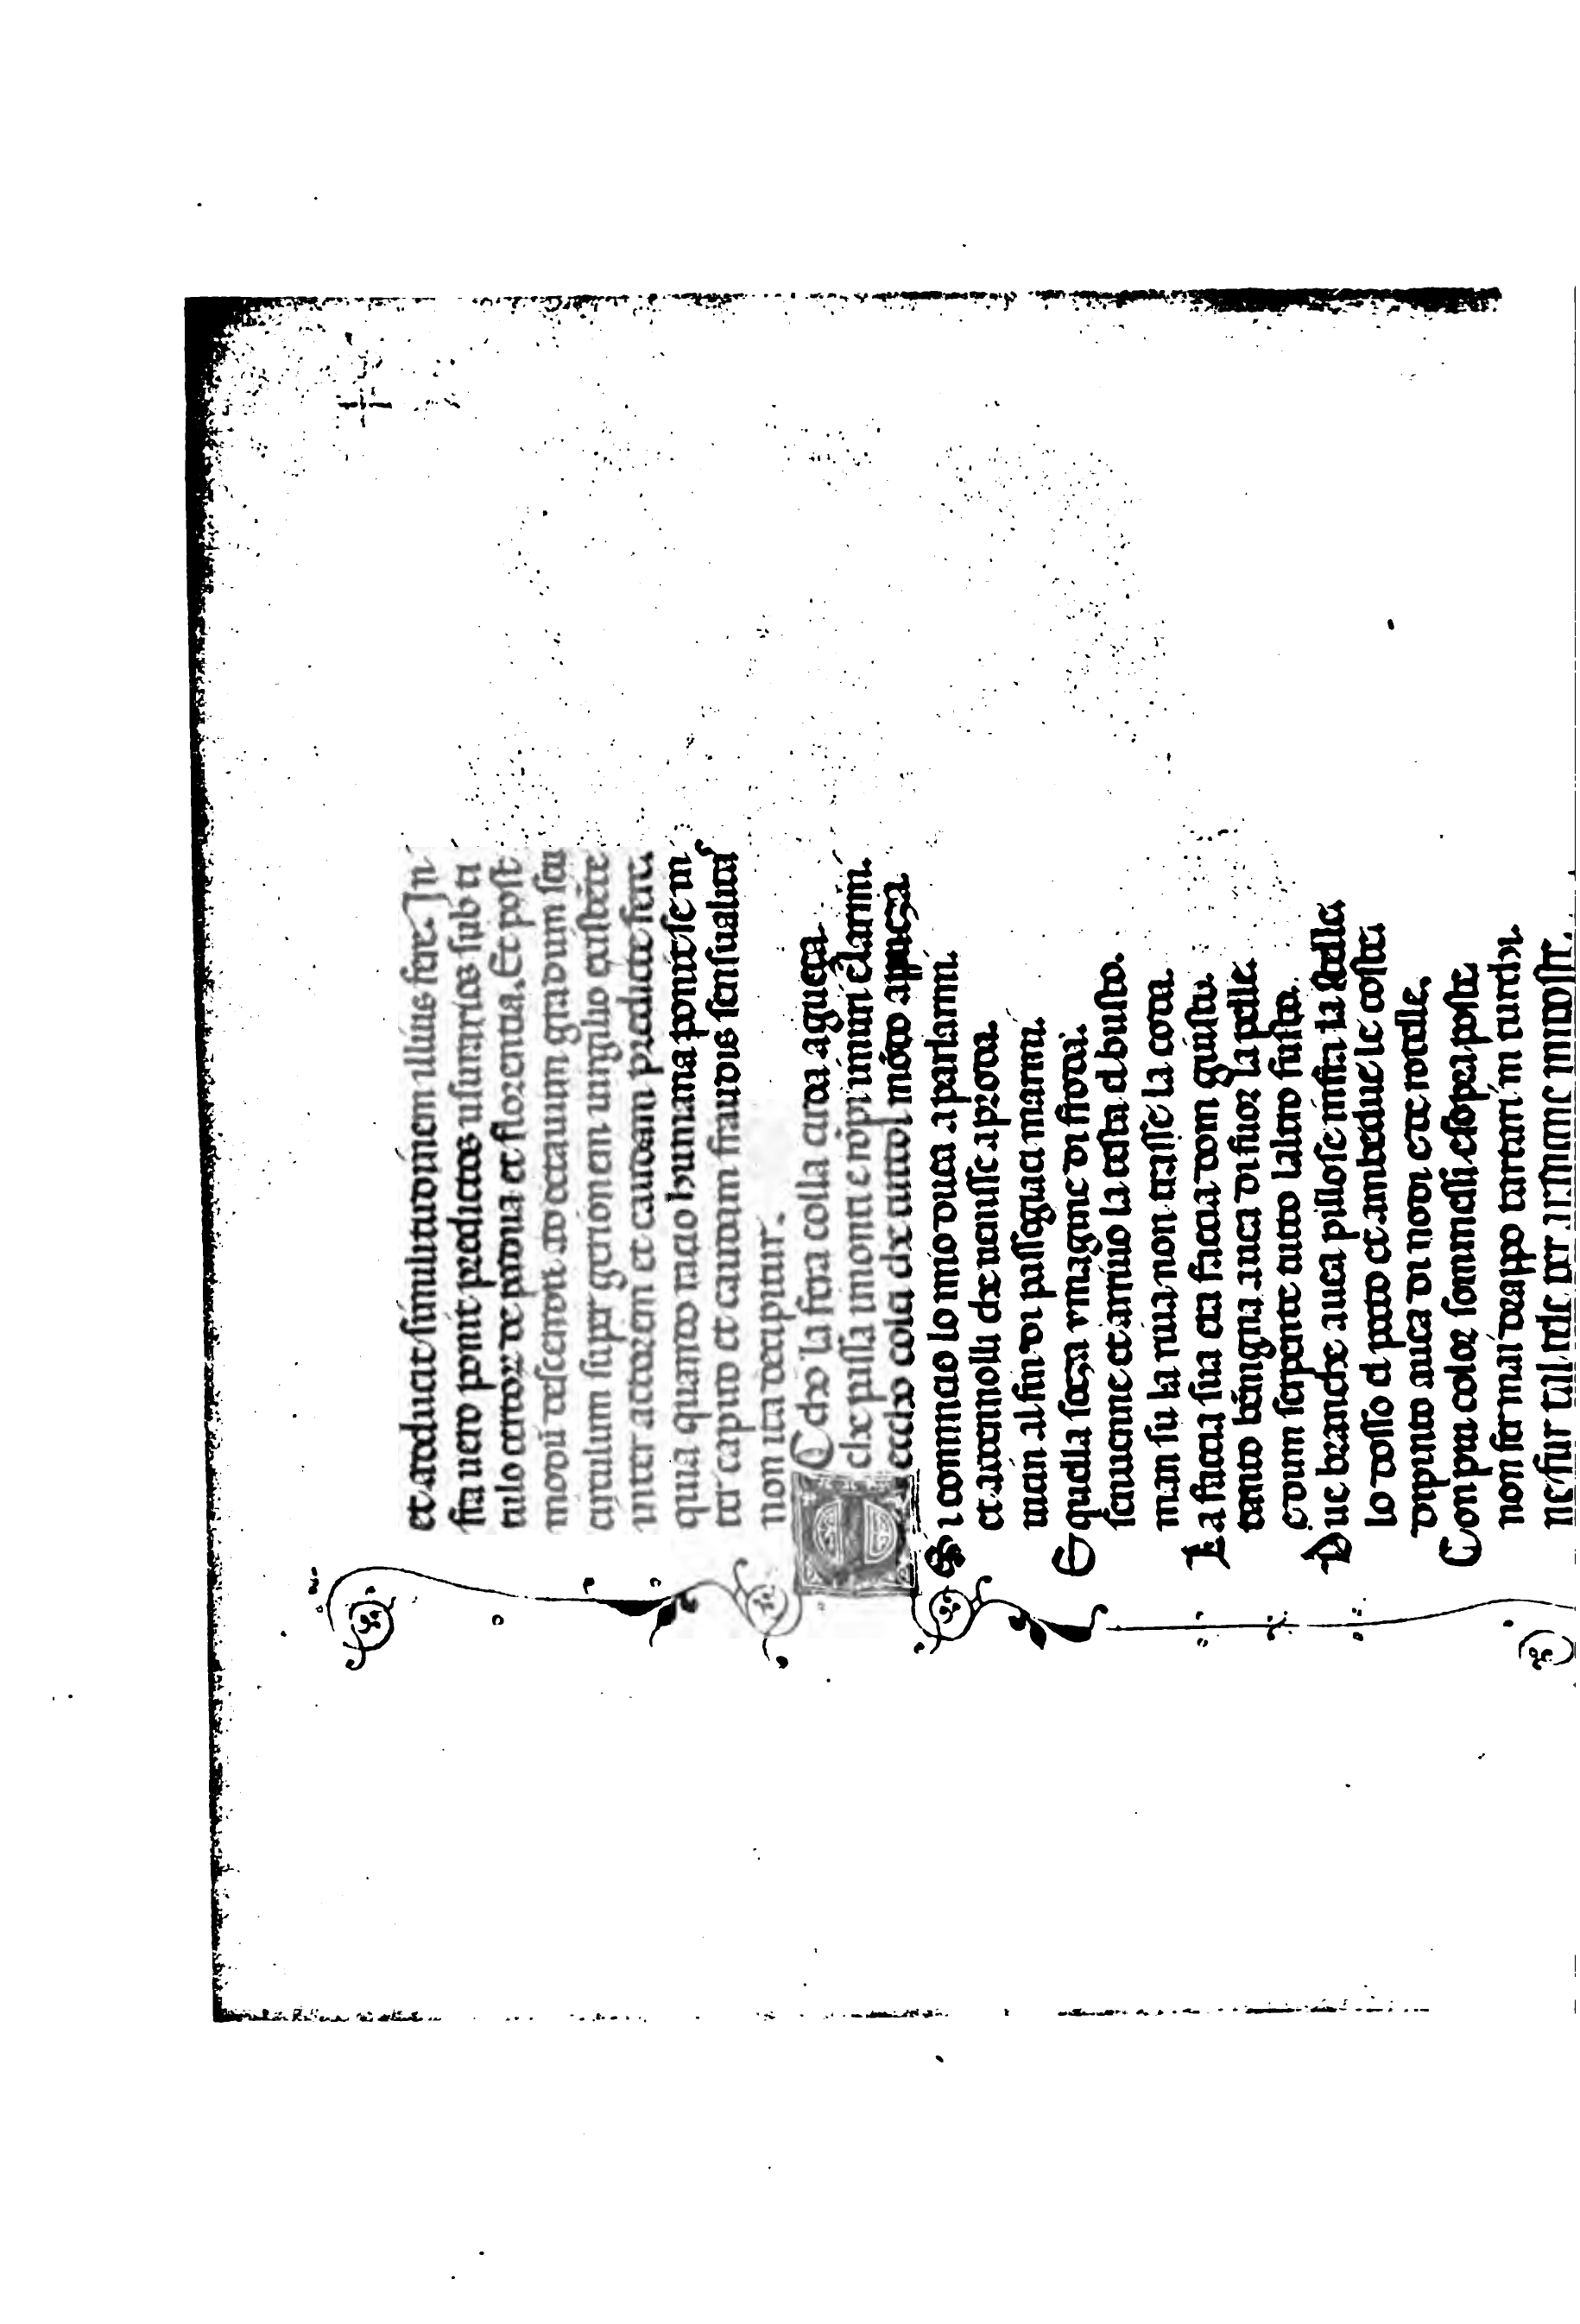 et adducit similitudinem illius fere. In
fra vero ponit predictos usurarios sub ti
tulo cerdor de padua et florentia. Et post
modū descendit ad octauum gradum seu
circulum super gerionem uirgilio existēte
inter actorem et caudam predicte fere.
quia quando racio humana ponit se in
ter caput et caudam fraudis sensualitas
non ita decipitur.
Ccho la fera colla coda agueza.
che passa i monti e rōpi i muri e larmi.
eccho colei che tuttol mōdo appuza.
Si comincio lo mio duca a parlarmi.
et acennolli che uenisse a proda.
uicin al fin di passegiati marmi.
E quella soza ymagine di froda.
senuenne et arriuo la testa el busto.
man su la riua non trasse la coda.
La faccia sua era faccia dom giusto.
tanto benigna auea di fuor la pelle.
e dum serpente tutto laltro fusto.
Due branche auea pillose infin la scelle
lo dosso el petto et ambedue le coste.
dipinto auea di nodi e de rotelle.
Con piu color sommesse e sopra poste.
non fer mai drappo tartari ni turchi.
ne fur tal tele per aragne imposte.